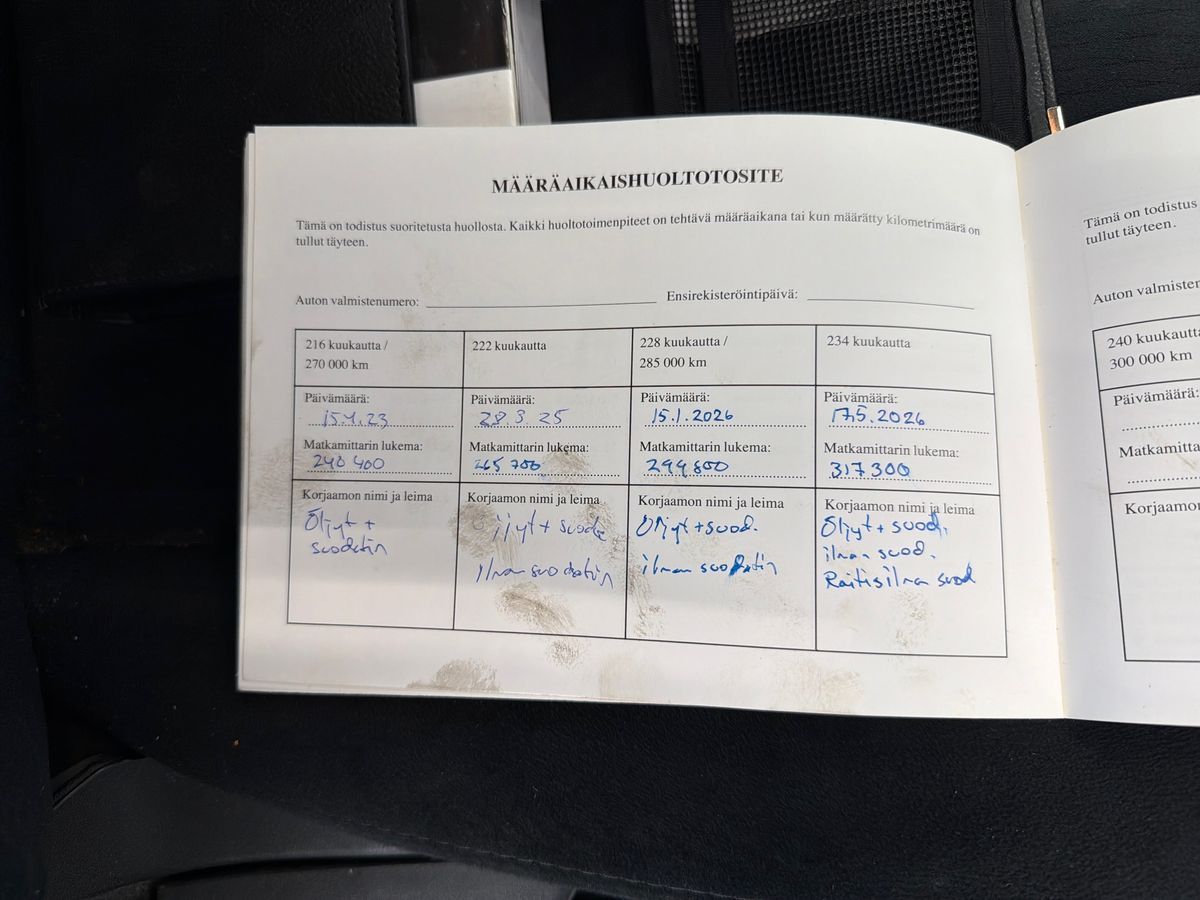 MÄÄRÄAIKAISHUOLTOTOSITE
Tämä on todistus suoritetusta huollosta. Kaikki huoltotoimenpiteet on tehtävä määräaikana tai kun määrätty kilometrimäärä on
tullut täyteen.
Auton valmistenumero:
Ensirekisteröintipäivä:
216 kuukautta /
270 000 km
Päivämäärä:
Matkamittarin lukema:
240 400
Korjaamon nimi ja leima
Öljyt +
suodatin
222 kuukautta
Päivämäärä:
28.3.25
Matkamittarin lukema:
265 700
Korjaamon nimi ja leima
Öljyt + suoda
ilmansuodatin
228 kuukautta /
285 000 km
Päivämäärä:
15.1.2026
Matkamittarin lukema:
299 800
Korjaamon nimi ja leima
Öljyt + suod.
ilman suodatin
234 kuukautta
Päivämäärä:
17.5.2026
Matkamittarin lukema:
317 300
Korjaamon nimi ja leima
Öljyt + suod.
ilman suod.
Raitisilma suod
Tämä on todistus
tullut täyteen.
Auton
240
300 000 km
Päivämäärä: